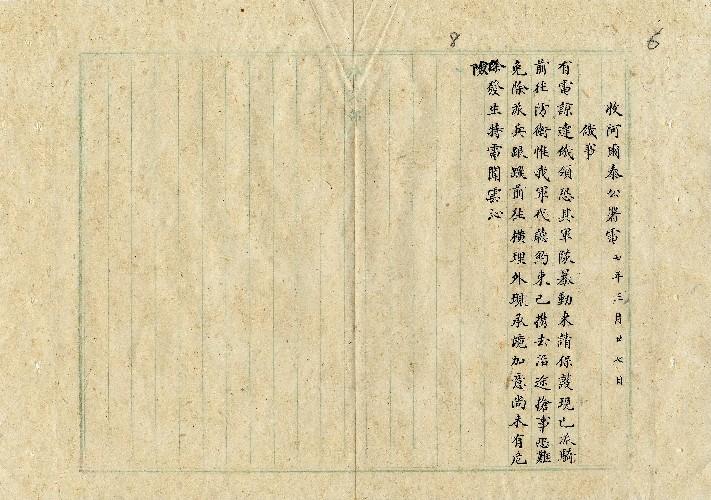 6
8
收阿爾泰公署電 七年三月廿七日
俄事
有電諒達俄領恐其軍隊暴動來請保護現已派騎
前往防衛惟我軍代聽約束已携去沿途搶事恐難
免除派兵跟蹤前往橫理外現承境加意尚未有危
險發生特電聞雲沁